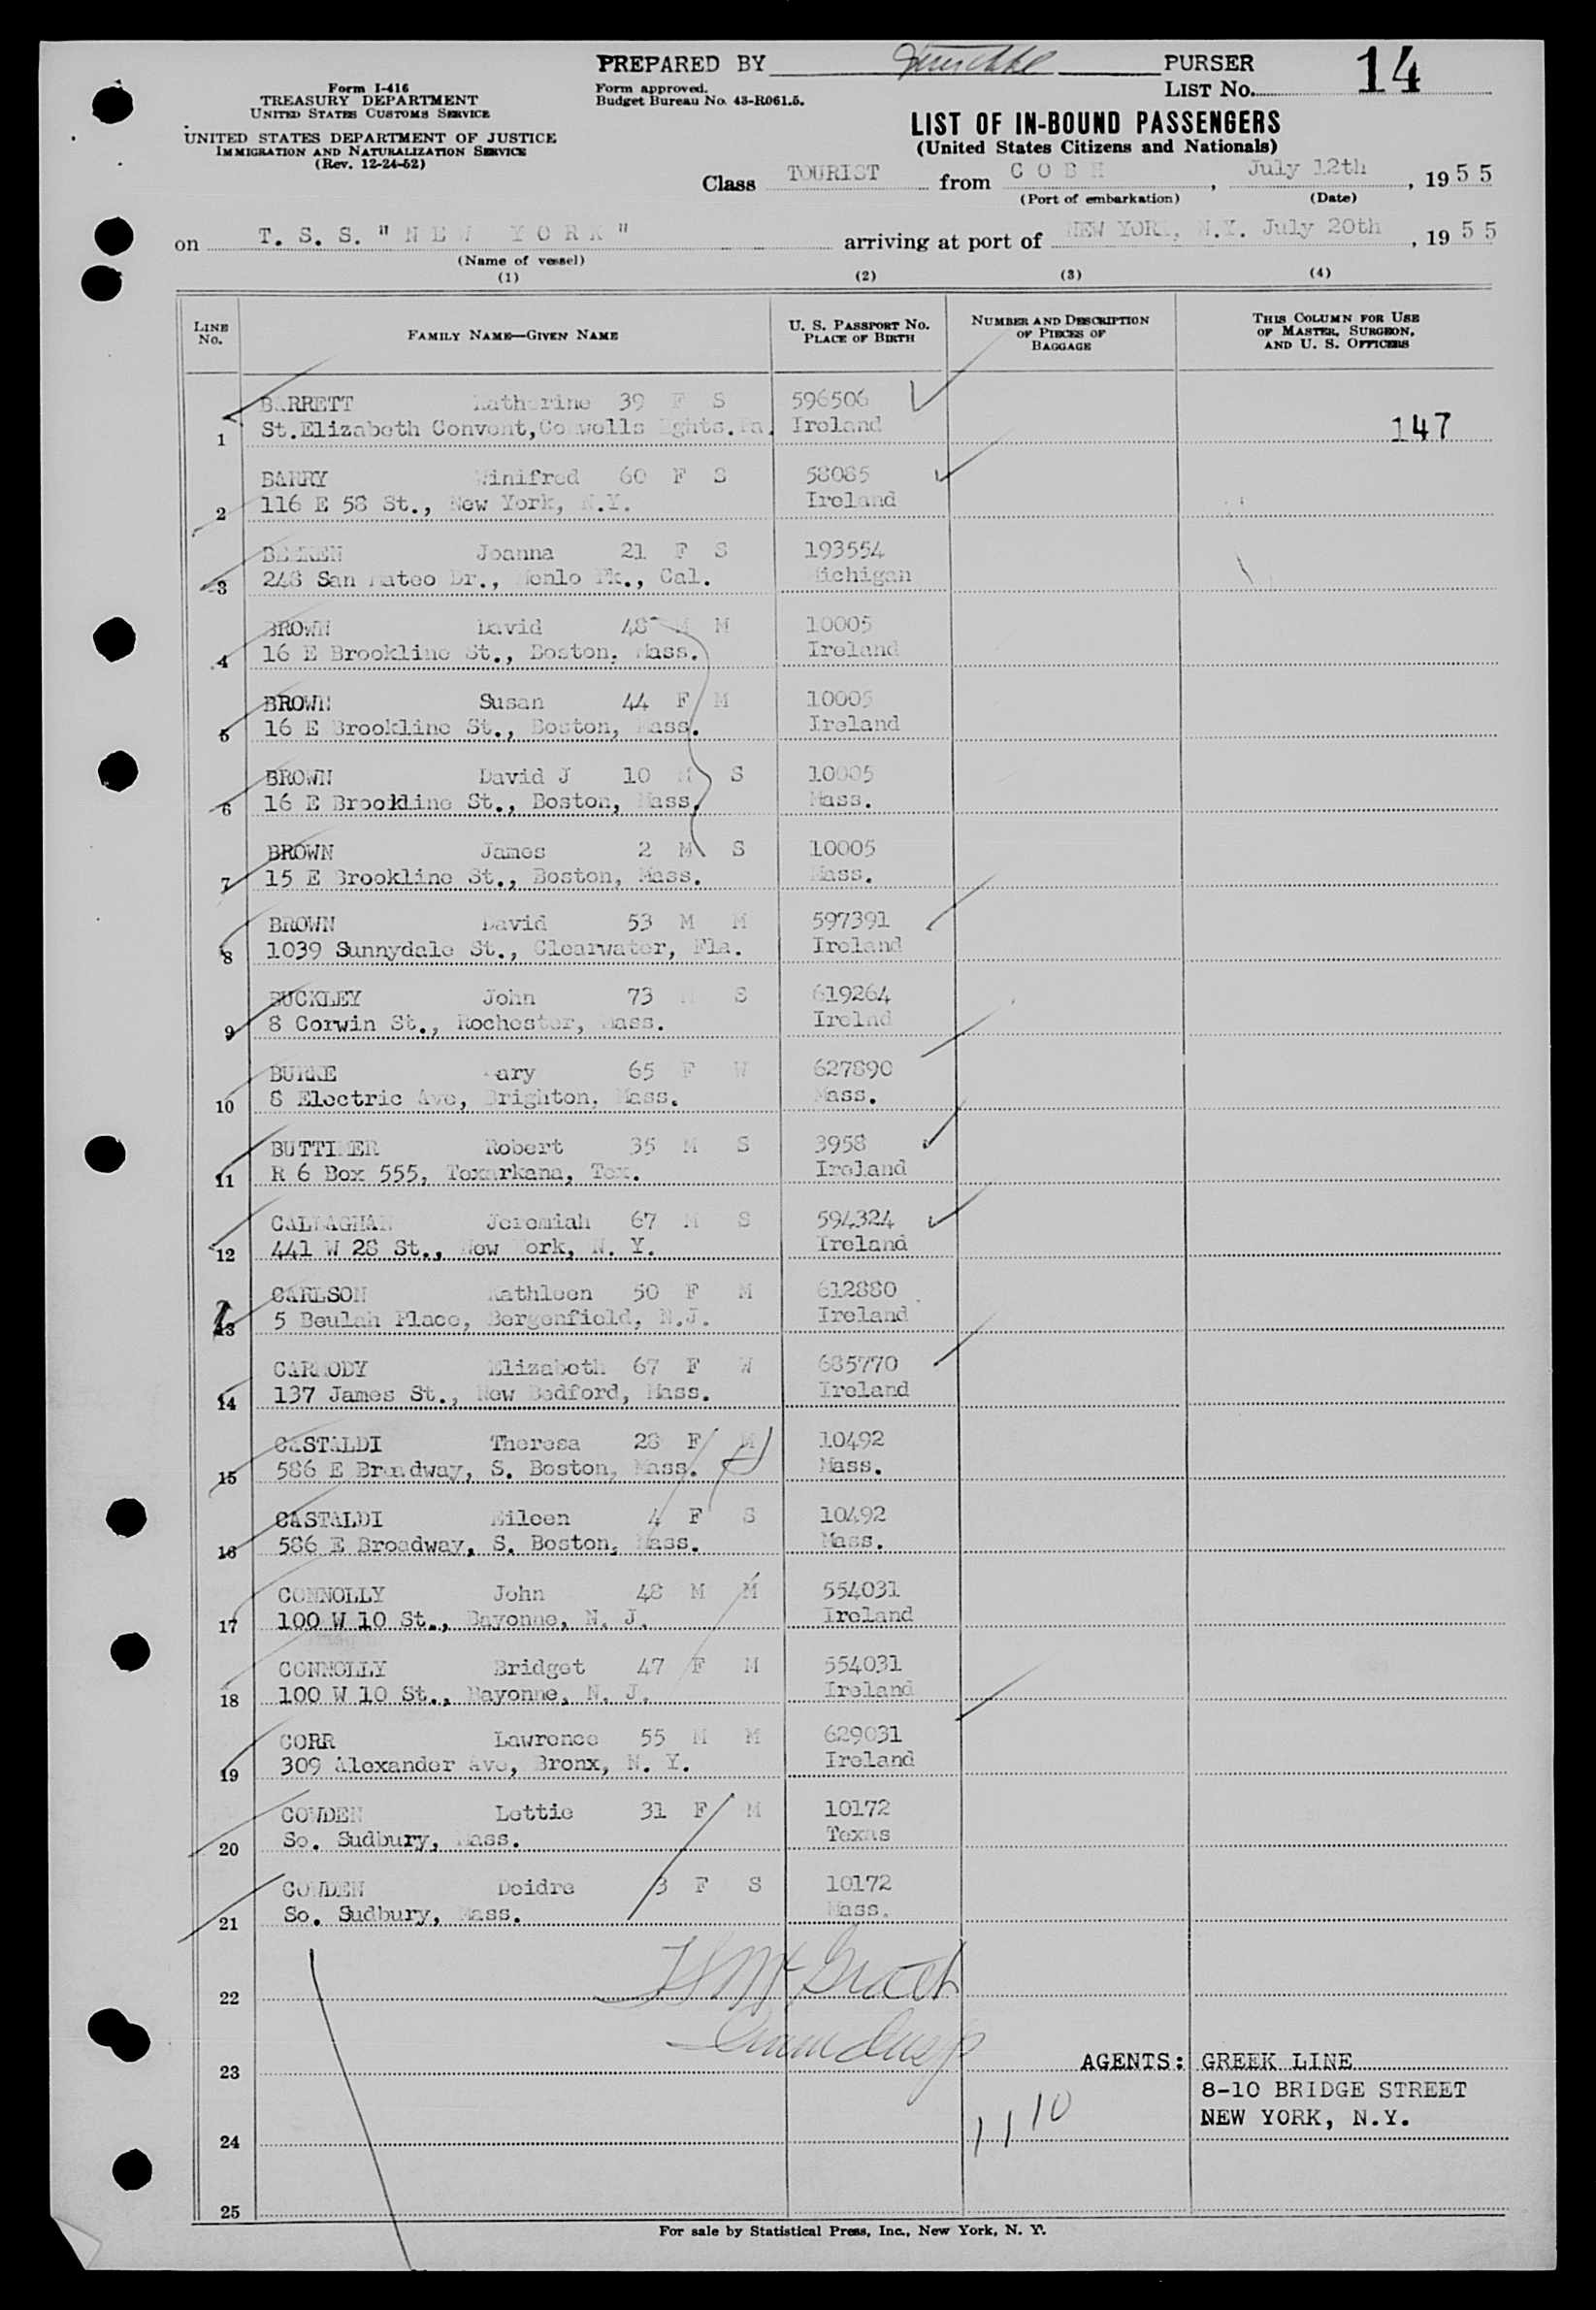 PREPARED BY PURSER
Form I-416
TREASURY DEPARTMENT
UNITED STATES CUSTOMS SERVICE
UNITED STATES DEPARTMENT OF JUSTICE
IMMIGRATION AND NATURALIZATION SERVICE
(Rev. 12-24-52)
Form approved.
Budget Bureau No. 43-R061.5.
LIST No. 14
LIST OF IN-BOUND PASSENGERS
(United States Citizens and Nationals)
Class TOURIST from C O B H, July 12th, 19 5 5
(Port of embarkation) (Date)
on T. S. S. " N E W Y O R K " arriving at port of NEW YORK, N.Y. July 20th, 19 5 5
(Name of vessel)
(1) (2) (3) (4)
LINE No. FAMILY NAME—GIVEN NAME U. S. PASSPORT No. PLACE OF BIRTH NUMBER AND DESCRIPTION OF PIECES OF BAGGAGE THIS COLUMN FOR USE OF MASTER, SURGEON, AND U. S. OFFICERS
BARRETT Katherine 39 F S 596506
1 St.Elizabeth Convent,Cornwells Hghts.Pa. Ireland 147
BARRY Winifred 60 F S 58085
2 116 E 58 St., New York, N.Y. Ireland
Joanna 21 F S 193554
3 248 San Mateo Dr., Menlo Pk., Cal. Michigan
BROWN David 48 M M 10005
4 16 E Brookline St., Boston, Mass. Ireland
BROWN Susan 44 F M 10005
5 16 E Brookline St., Boston, Mass. Ireland
BROWN David J 10 M S 10005
6 16 E Brookline St., Boston, Mass. Mass.
BROWN James 2 M S 10005
7 15 E Brookline St., Boston, Mass. Mass.
BROWN David 53 M M 597391
8 1039 Sunnydale St., Clearwater, Fla. Ireland
BUCKLEY John 73 M S 619264
9 8 Corwin St., Rochester, Mass. Irelnd
BURKE Mary 65 F W 627890
10 8 Electric Ave, Brighton, Mass. Mass.
BUTTIMER Robert 35 M S 3958
11 R 6 Box 555, Texarkana, Tex. Ireland
CALLAGHAN Jeremiah 67 M S 594324
12 441 W 28 St., New York, N. Y. Ireland
CARLSON Kathleen 50 F M 612880
13 5 Beulah Place, Bergenfield, N.J. Ireland
CARMODY Elizabeth 67 F W 685770
14 137 James St., New Bedford, Mass. Ireland
CASTALDI Theresa 28 F M 10492
15 586 E Broadway, S. Boston, Mass. Mass.
CASTALDI Eileen 4 F S 10492
16 586 E Broadway, S. Boston, Mass. Mass.
CONNOLLY John 48 M M 554031
17 100 W 10 St., Bayonne, N. J. Ireland
CONNOLLY Bridget 47 F M 554031
18 100 W 10 St., Bayonne, N. J. Ireland
CORR Lawrence 55 M M 629031
19 309 Alexander Ave, Bronx, N. Y. Ireland
COWDEN Lettie 31 F M 10172
20 So. Sudbury, Mass. Texas
COWDEN Deidre 3 F S 10172
21 So. Sudbury, Mass. Mass.
22
23 AGENTS: GREEK LINE
8-10 BRIDGE STREET
NEW YORK, N.Y.
11 10
24
25
For sale by Statistical Press, Inc., New York, N. Y.